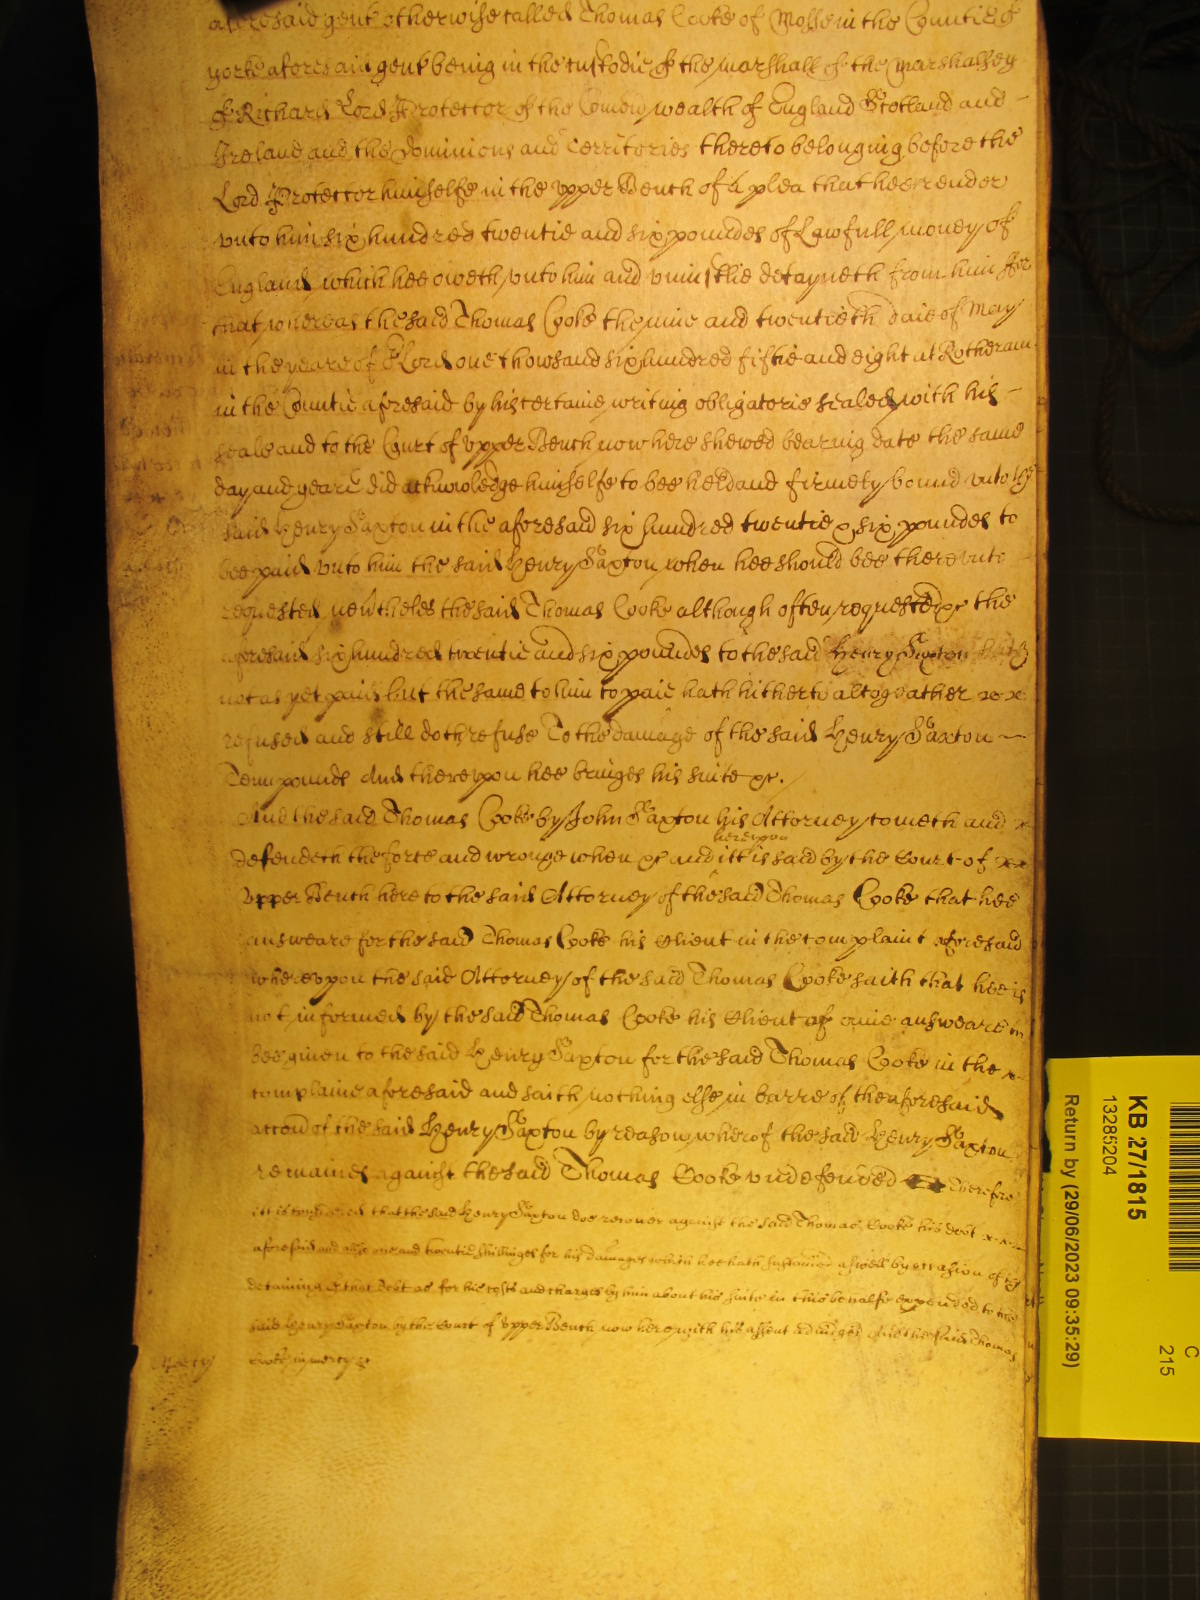 aforesaid gent otherwise called Thomas Cooke of Mosse in the Countie of
yorke aforesaid gent being in the custodie of the marshall of the Marshalsey
of Richard Lord Protector of the Comon wealth of England Scotland and
Ireland and the Dominions and Territories thereto belonging before the
Lord Protector himselfe in the vpper Bench of a plea that hee render
vnto him six hundred twentie and six poundes of Lawfull money of
England which hee oweth vnto him and vniustlie detayneth from him For
that whereas the said Thomas Cooke the nine and twentieth daie of May
in the yeare of Lord one thowsand six hundred fiftie and eight at Rotheram
in the Countie aforesaid by his certaine writing obligatorie sealed with his
seale and to the Court of vpper Bench now here shewed bearing date the same
day and yeare did acknowledge himselfe to bee held and firmely bound vnto the
said Henry Saxton in the aforesaid six hundred twentie & six poundes to
bee paid vnto him the said Henry Saxton when hee should bee therevnto
requested neutheles the said Thomas Cooke although often requested &c the
aforesaid six hundred twentie and six poundes to the said Henry Saxton hath
not as yet paid but the same to him to paie hath hitherto altogeather
refused and still doth refuse To the damage of the said Henry Saxton
Tenn pounds And therevpon hee bringes his suite &c.
And the said Thomas Cooke by John Saxton his Attorney cometh and
defendeth the force and wronge when &c and herevpon itt is said by the Court of
Vpper Bench here to the said Attorney of the said Thomas Cooke that hee
answeare for the said Thomas Cooke his Client in the complaint aforesaid
wherevpon the said Attorney of the said Thomas Cooke saith that hee is
not informed by the said Thomas Cooke his Client of anie answeare to
bee given to the said Henry Saxton for the said Thomas Cooke in the
complaine aforesaid and saith nothing else in barre of the aforesaid
accon of the said Henry Saxton by reason wherof the said Henry Saxton
remaines against the said Thomas Cooke vndefended Therefore
itt is considered that the said Henry Saxton doe recover against the said Thomas Cooke his debt
aforesaid and alsoe one and twentie shillinges for his damages which hee hath susteined aswell by occasion of the
detaining of that debt as for his costs and charges by him about his suite in this behalfe expended to the
said Henry Saxton by the Court of Vpper Bench now here with his assent adiudged And the said Thomas
Mercy Cooke in mercy &c
KB 27/1815
13285204
Return by (29/06/2023 09:35:29)
C
215